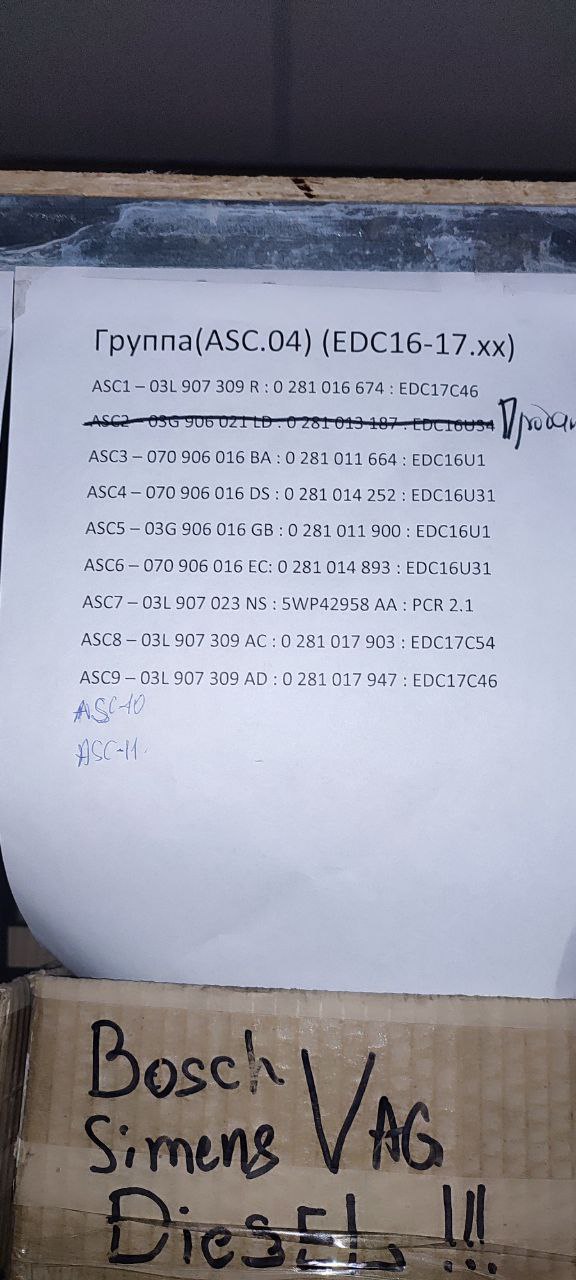 Группа(ASC.04) (EDC16-17.xx)
ASC1 – 03L 907 309 R : 0 281 016 674 : EDC17C46
ASC2 – 03G 906 021 LD : 0 281 013 187 : EDC16U34
ASC3 – 070 906 016 BA : 0 281 011 664 : EDC16U1
ASC4 – 070 906 016 DS : 0 281 014 252 : EDC16U31
ASC5 – 03G 906 016 GB : 0 281 011 900 : EDC16U1
ASC6 – 070 906 016 EC: 0 281 014 893 : EDC16U31
ASC7 – 03L 907 023 NS : 5WP42958 AA : PCR 2.1
ASC8 – 03L 907 309 AC : 0 281 017 903 : EDC17C54
ASC9 – 03L 907 309 AD : 0 281 017 947 : EDC17C46
ASC-10
ASC-11.
Bosch
Simens VAG
DiesEL !!!